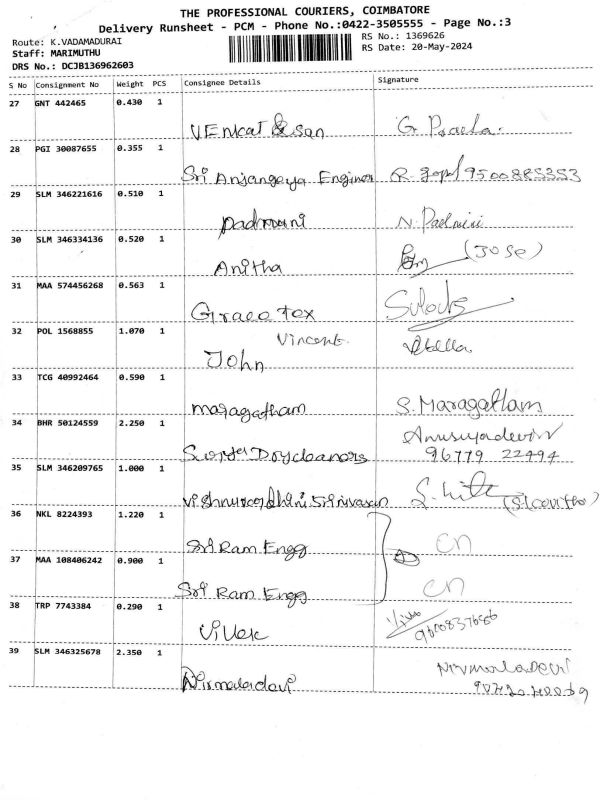 THE PROFESSIONAL COURIERS, COIMBATORE
Delivery Runsheet - PCM - Phone No.:0422-3505555 - Page No.:3
Route: K.VADAMADURAI
Staff: MARIMUTHU
DRS No.: DCJB136962603
RS No.: 1369626
RS Date: 20-May-2024
S No Consignment No Weight PCS Consignee Details Signature
27 GNT 442465 0.430 1
VEnkat & San
28 PGI 30087655 0.355 1
Sri Anjangeya Engineer R. gopal 9500885353
29 SLM 346221616 0.510 1
Padmini N. Padmini
30 SLM 346334136 0.520 1
Anitha (JOSE)
31 MAA 574456268 0.563 1
Graeo tex
32 POL 1568855 1.070 1
Vincent.
John Stella
33 TCG 40992464 0.590 1
maragatham S. Maragatham
34 BHR 50124559 2.250 1
Anusuyadevi
Surya Drycleaners 96779 22494
35 SLM 346209765 1.000 1
Srinivasan
36 NKL 8224393 1.220 1
Sri Ram Engg cn
37 MAA 108406242 0.900 1
Sri Ram Engg cn
38 TRP 7743384 0.290 1
Vivek 9600837686
39 SLM 346325678 2.350 1
Nirmaladevi Nirmaladevi